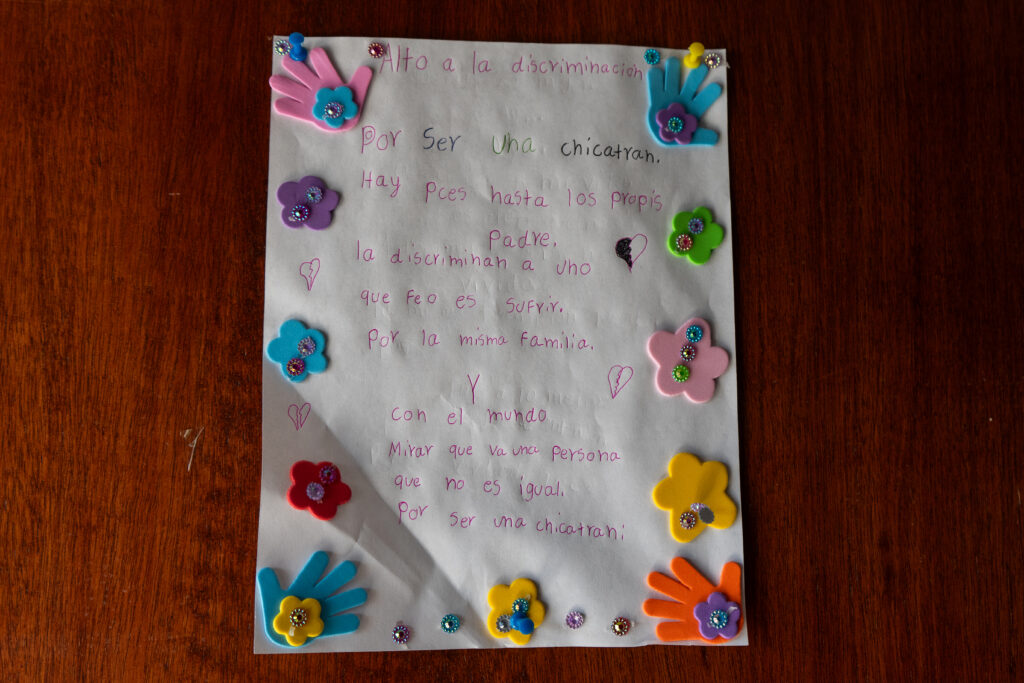 Alto a la discriminación
Por Ser una chicatran.
Hay pces hasta los propis
Padre.
la discriminan a uno
que feo es sufrir.
Por la misma familia.
Y
con el mundo
Mirar que va una persona
que no es igual.
Por ser una chicatran;